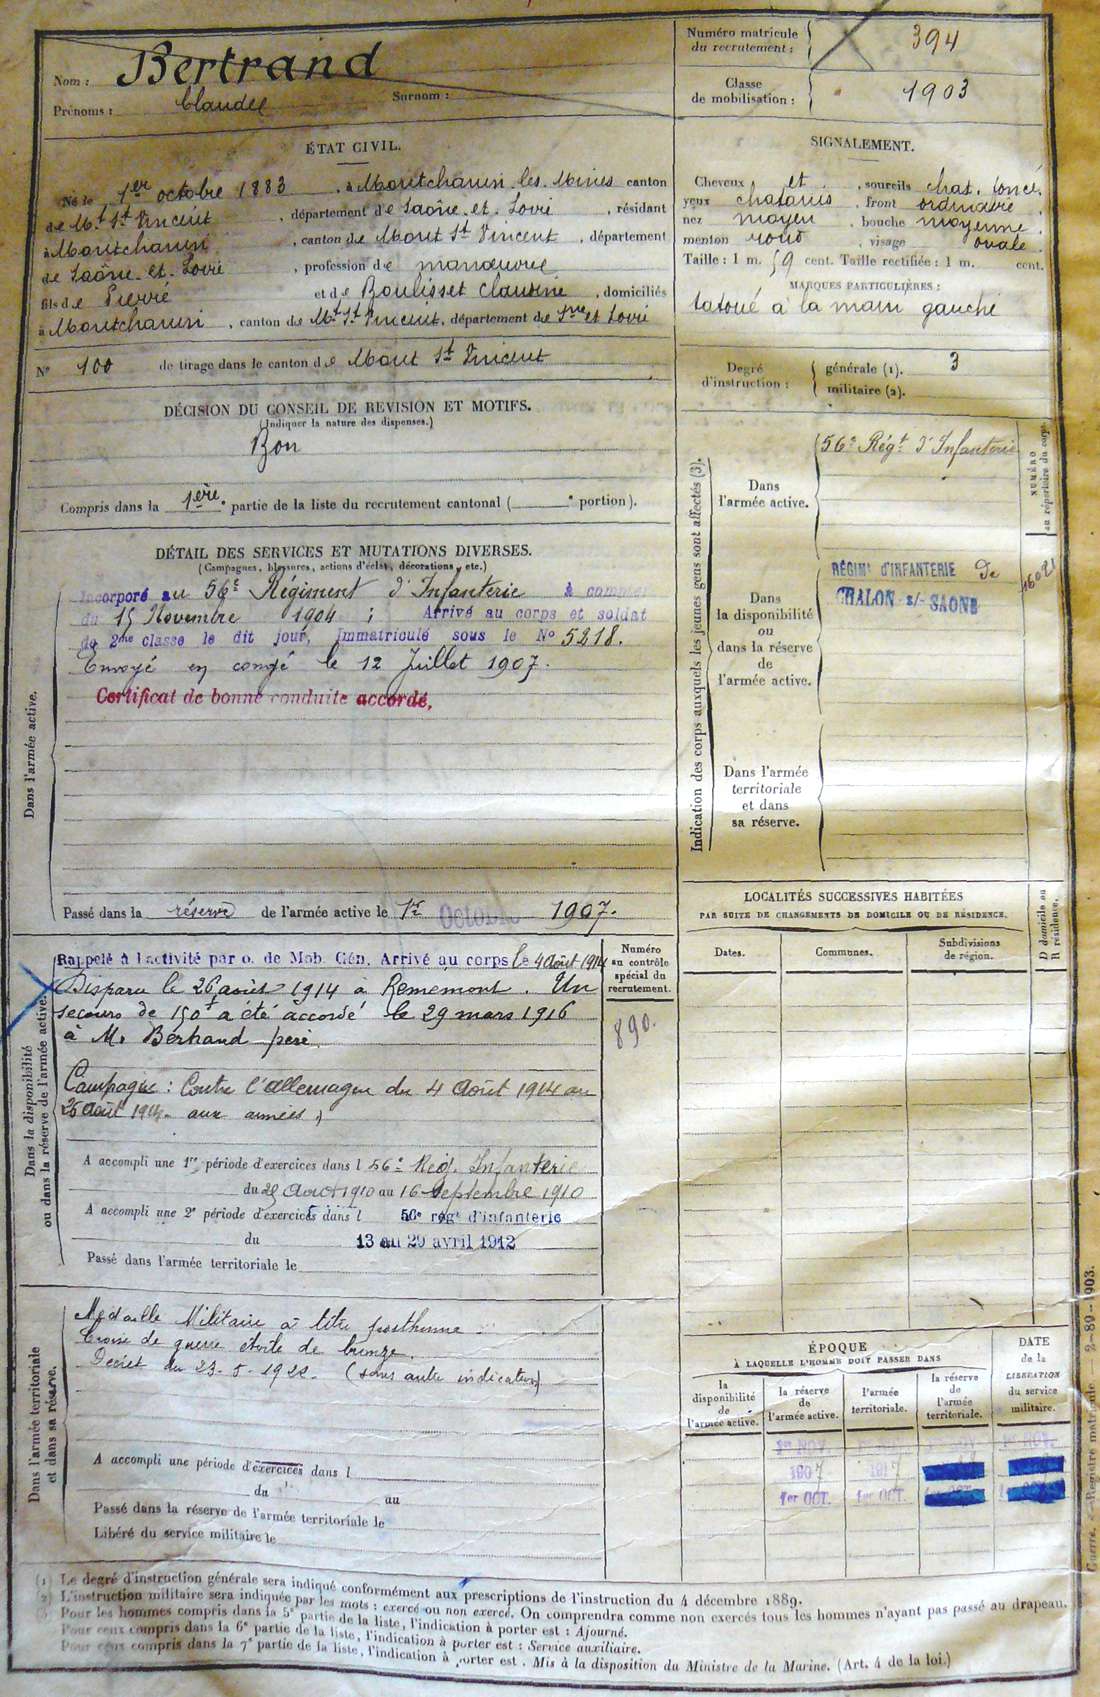 Nom : Bertrand
Prénoms : Claude Surnom :
Numéro matricule du recrutement : 394
Classe de mobilisation : 1903
ÉTAT CIVIL.
Né le 1er octobre 1883, à Montchanin les Mines canton
de Mt St Vincent, département de Saône et Loire, résidant
à Montchanin, canton de Mont St Vincent, département
de Saône et Loire, profession de manœuvre
fils de Pierre et de Boulisset Claudine, domiciliés
à Montchanin, canton de Mt St Vincent, département de Sne et Loire
N° 100 de tirage dans le canton de Mont St Vincent
SIGNALEMENT.
Cheveux et, sourcils chat. foncé,
yeux chatains, front ordinaire,
nez moyen, bouche moyenne,
menton rond, visage ovale.
Taille : 1 m. 59 cent. Taille rectifiée : 1 m. cent.
MARQUES PARTICULIÈRES :
tatoué à la main gauche
Degré d'instruction : générale (1). 3
militaire (2).
DÉCISION DU CONSEIL DE REVISION ET MOTIFS.
(Indiquer la nature des dispenses.)
Bon
Compris dans la 1ère partie de la liste du recrutement cantonal ( e portion).
DÉTAIL DES SERVICES ET MUTATIONS DIVERSES.
(Campagnes, blessures, actions d'éclat, décorations, etc.)
Dans l'armée active.
Incorporé au 56e Régiment d'Infanterie à compter
du 15 Novembre 1904 ; Arrivé au corps et soldat
de 2me classe le dit jour, immatriculé sous le N° 5218.
Envoyé en congé le 12 Juillet 1907.
Certificat de bonne conduite accordé.
Passé dans la réserve de l'armée active le 1er Octobre 1907.
Indication des corps auxquels les jeunes gens sont affectés (3).
NUMÉRO au répertoire du corps.
Dans l'armée active.
56e Régt d'Infanterie
Dans la disponibilité ou dans la réserve de l'armée active.
RÉGIMt D'INFANTERIE De
CHALON s/- SAONE
Dans l'armée territoriale et dans sa réserve.
LOCALITÉS SUCCESSIVES HABITÉES
PAR SUITE DE CHANGEMENTS DE DOMICILE OU DE RÉSIDENCE.
Dates. Communes. Subdivisions de région. D domicile ou R résidence.
Numéro au contrôle spécial du recrutement.
890.
Dans la disponibilité ou dans la réserve de l'armée active.
Rappelé à l'activité par o. de Mob. Gén. Arrivé au corps le 4 août 1914
Disparu le 26 août 1914 à Rememont. Un
secours de 150f a été accordé le 29 mars 1916
à M. Bertrand père.
Campagne : Contre l'Allemagne du 4 Août 1914 au
26 Août 1914 aux armées,
A accompli une 1re période d'exercices dans l 56e Rég. Infanterie
du 25 Août 1910 au 16 Septembre 1910
A accompli une 2e période d'exercices dans l 56e régt d'infanterie
du 13 au 29 avril 1912
Passé dans l'armée territoriale le
Dans l'armée territoriale et dans sa réserve.
Médaille Militaire à titre posthume
Croix de guerre étoile de bronze.
Décret du 23-5-1922 (sans autre indication)
A accompli une période d'exercices dans l
du au
Passé dans la réserve de l'armée territoriale le
Libéré du service militaire le
ÉPOQUE
À LAQUELLE L'HOMME DOIT PASSER DANS
DATE de la LIBÉRATION du service militaire.
la disponibilité de l'armée active. la réserve de l'armée active. l'armée territoriale. la réserve de l'armée territoriale.
1er NOV. 1er NOV.
1907 1917
1er OCT. 1er OCT.
(1) Le degré d'instruction générale sera indiqué conformément aux prescriptions de l'instruction du 4 décembre 1889.
(2) L'instruction militaire sera indiquée par les mots : exercé ou non exercé. On comprendra comme non exercés tous les hommes n'ayant pas passé au drapeau.
(3) Pour les hommes compris dans la 5e partie de la liste, l'indication à porter est : Ajourné.
Pour ceux compris dans la 6e partie de la liste, l'indication à porter est : Service auxiliaire.
Pour ceux compris dans la 7e partie de la liste, l'indication à porter est : Mis à la disposition du Ministre de la Marine. (Art. 4 de la loi.)
Guerre. — Registre matricule. — 2-89-1903.